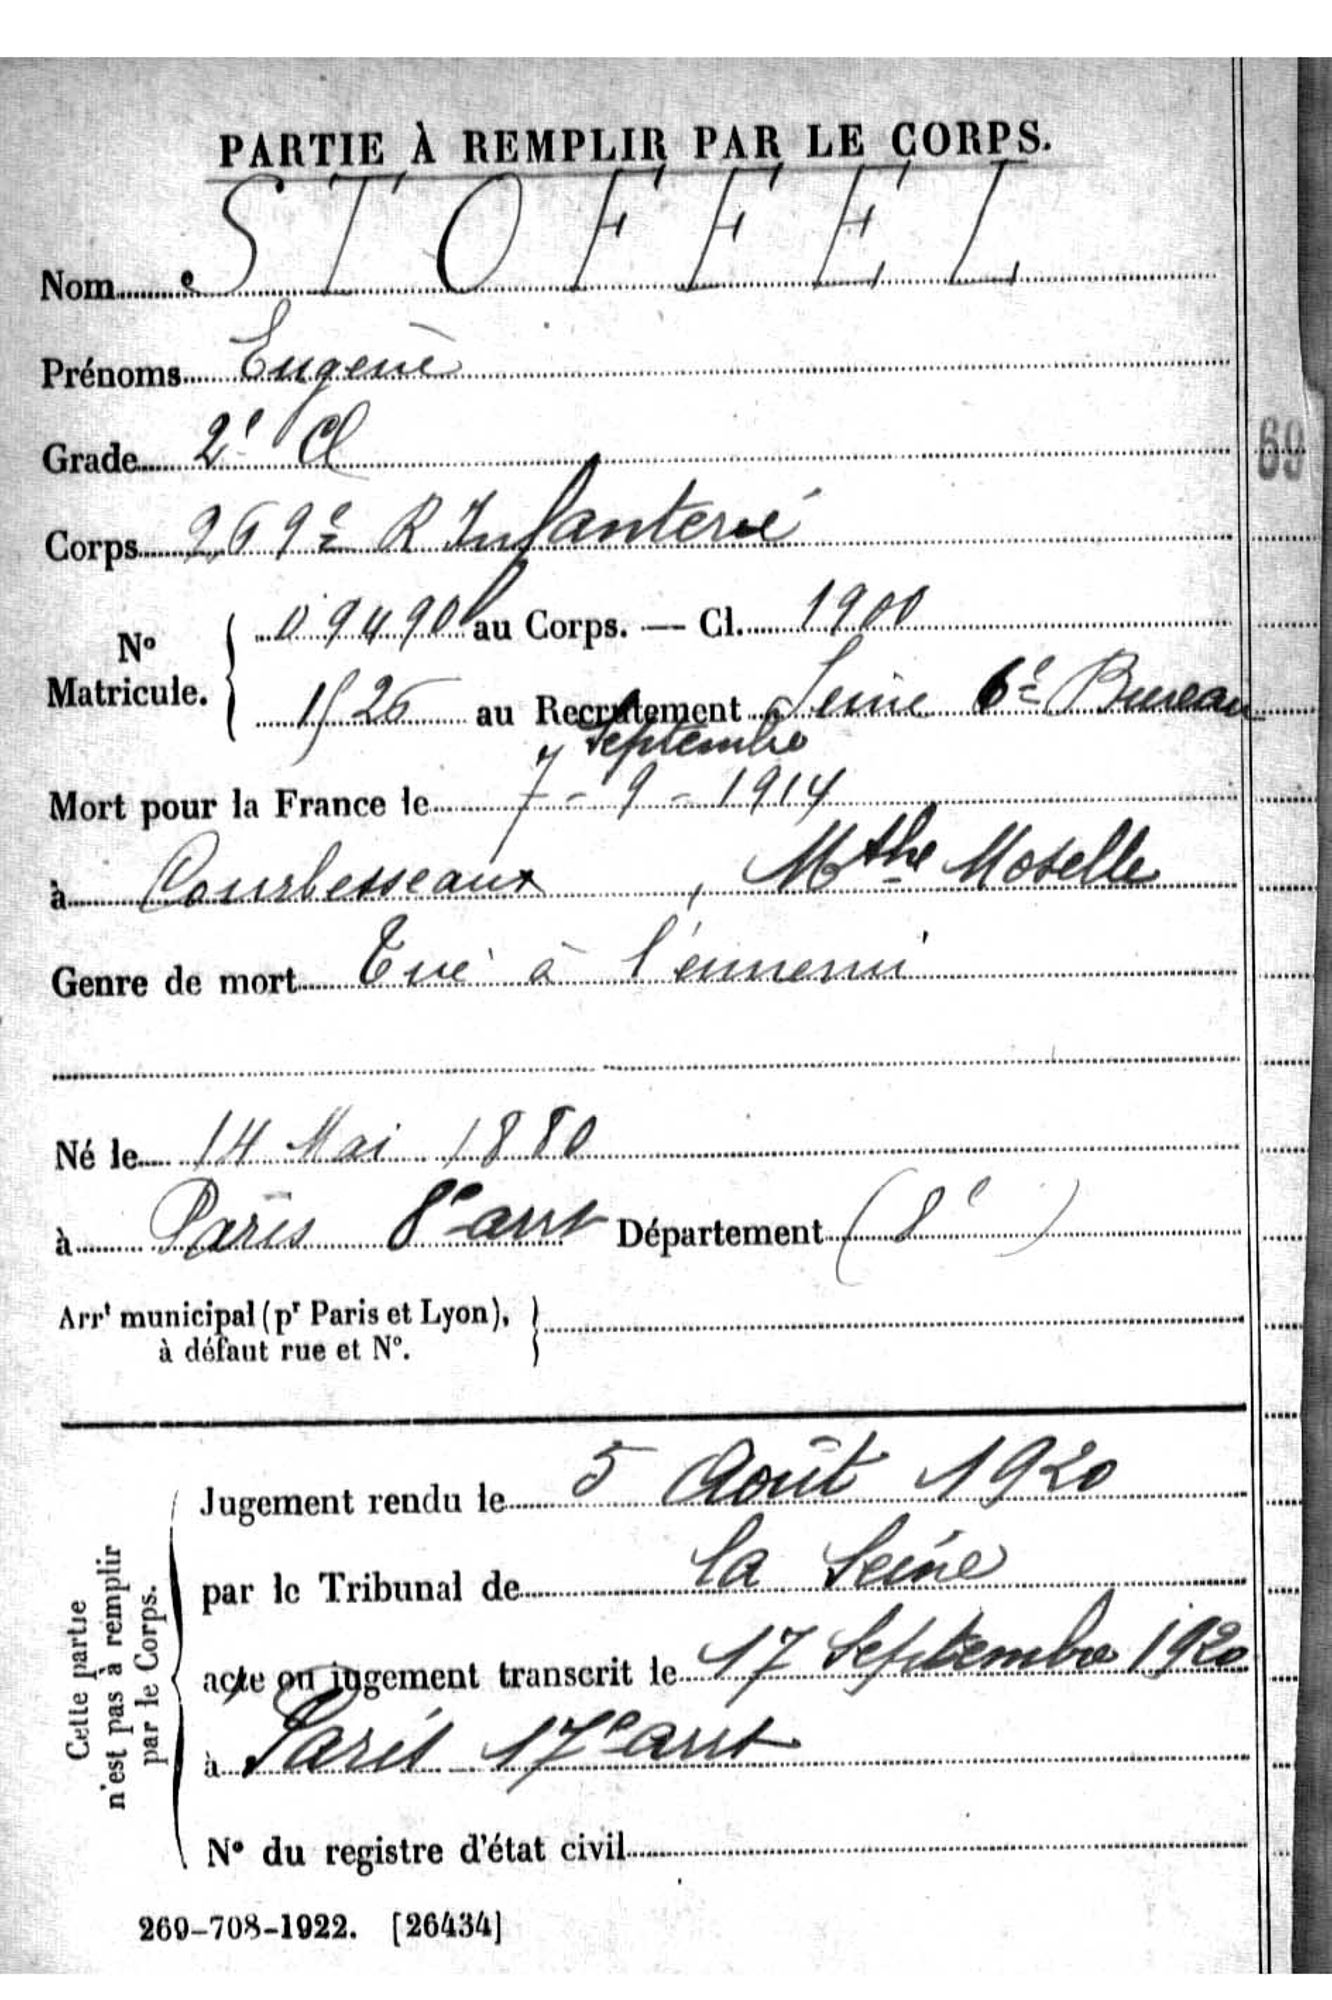 PARTIE À REMPLIR PAR LE CORPS.
Nom STOFFEL
Prénoms Eugène
Grade 2e Cl
Corps 269e R Infanterie
No Matricule. 09490 au Corps. — Cl. 1900
1526 au Recrutement Seine 6e Bureau
Septembre
Mort pour la France le 7 - 9 - 1914
à Courbesseaux, Mthe Moselle
Genre de mort Tué à l'ennemi
Né le 14 Mai 1880
à Paris 8e arrt Département (8e)
Arrt municipal (pr Paris et Lyon),
à défaut rue et No.
Cette partie
n'est pas à remplir
par le Corps.
Jugement rendu le 5 Août 1920
par le Tribunal de la Seine
acte ou jugement transcrit le 17 Septembre 1920
à Paris 17e arrt
No du registre d'état civil
269-708-1922. [26434]
69